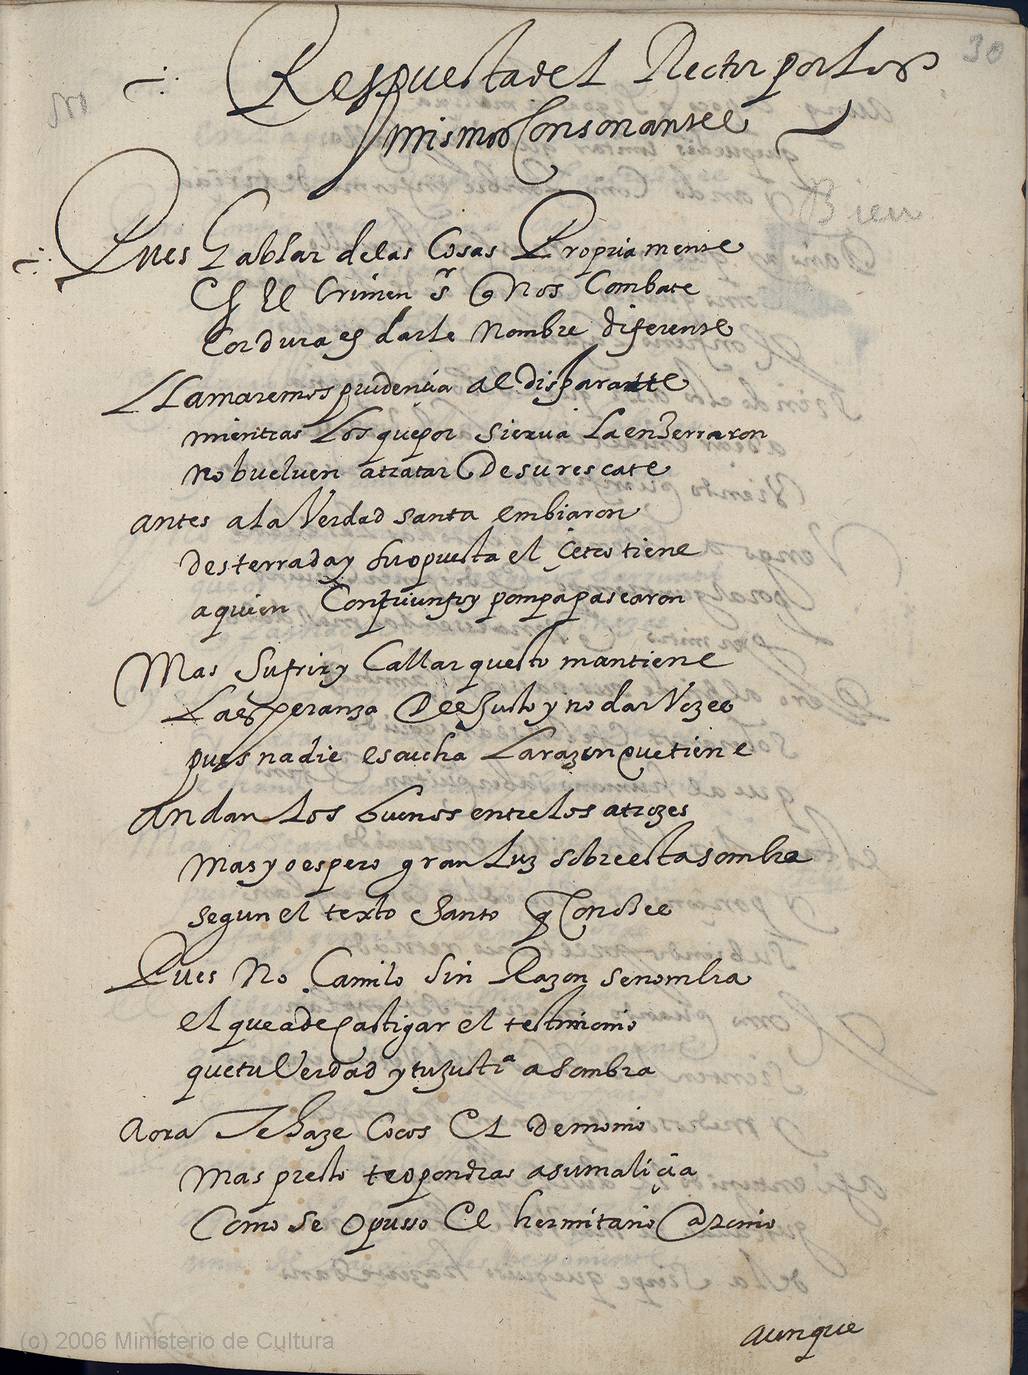 30
Respuesta del Rector por los
mismos Consonantes
Bien
Pues hablar de las Cosas Propriamente
es El Crimen sr q Nos Combate
Cordura es darle Nombre diferente
LLamaremos prudencia al disparatte
mientras Los que por sierva La enzerraron
No buelven a tratar De su rescate
antes a la Verdad santa embiaron
desterrada y su opuesta el çetro tiene
a quien Con triunfo y pompa pasearon
Mas Sufrir y Callar questo mantiene
La esperanza Del Justo y no dar Vozes
pues nadie escucha La razon que tiene
andan Los buenos entre los atrozes
mas yo espero gran Luz sobre esta sombra
segun el texto Santo q Conoses
Pues No Camilo Sin Razon se nombra
el que a de Castigar el testimonio
que tu Verdad y tu Justa asombra
aora Te haze Cocos El demonio
mas presto te opondras a su malicia
Como Se Opusso El hermitaño
aunque
(c) 2006 Ministerio de Cultura